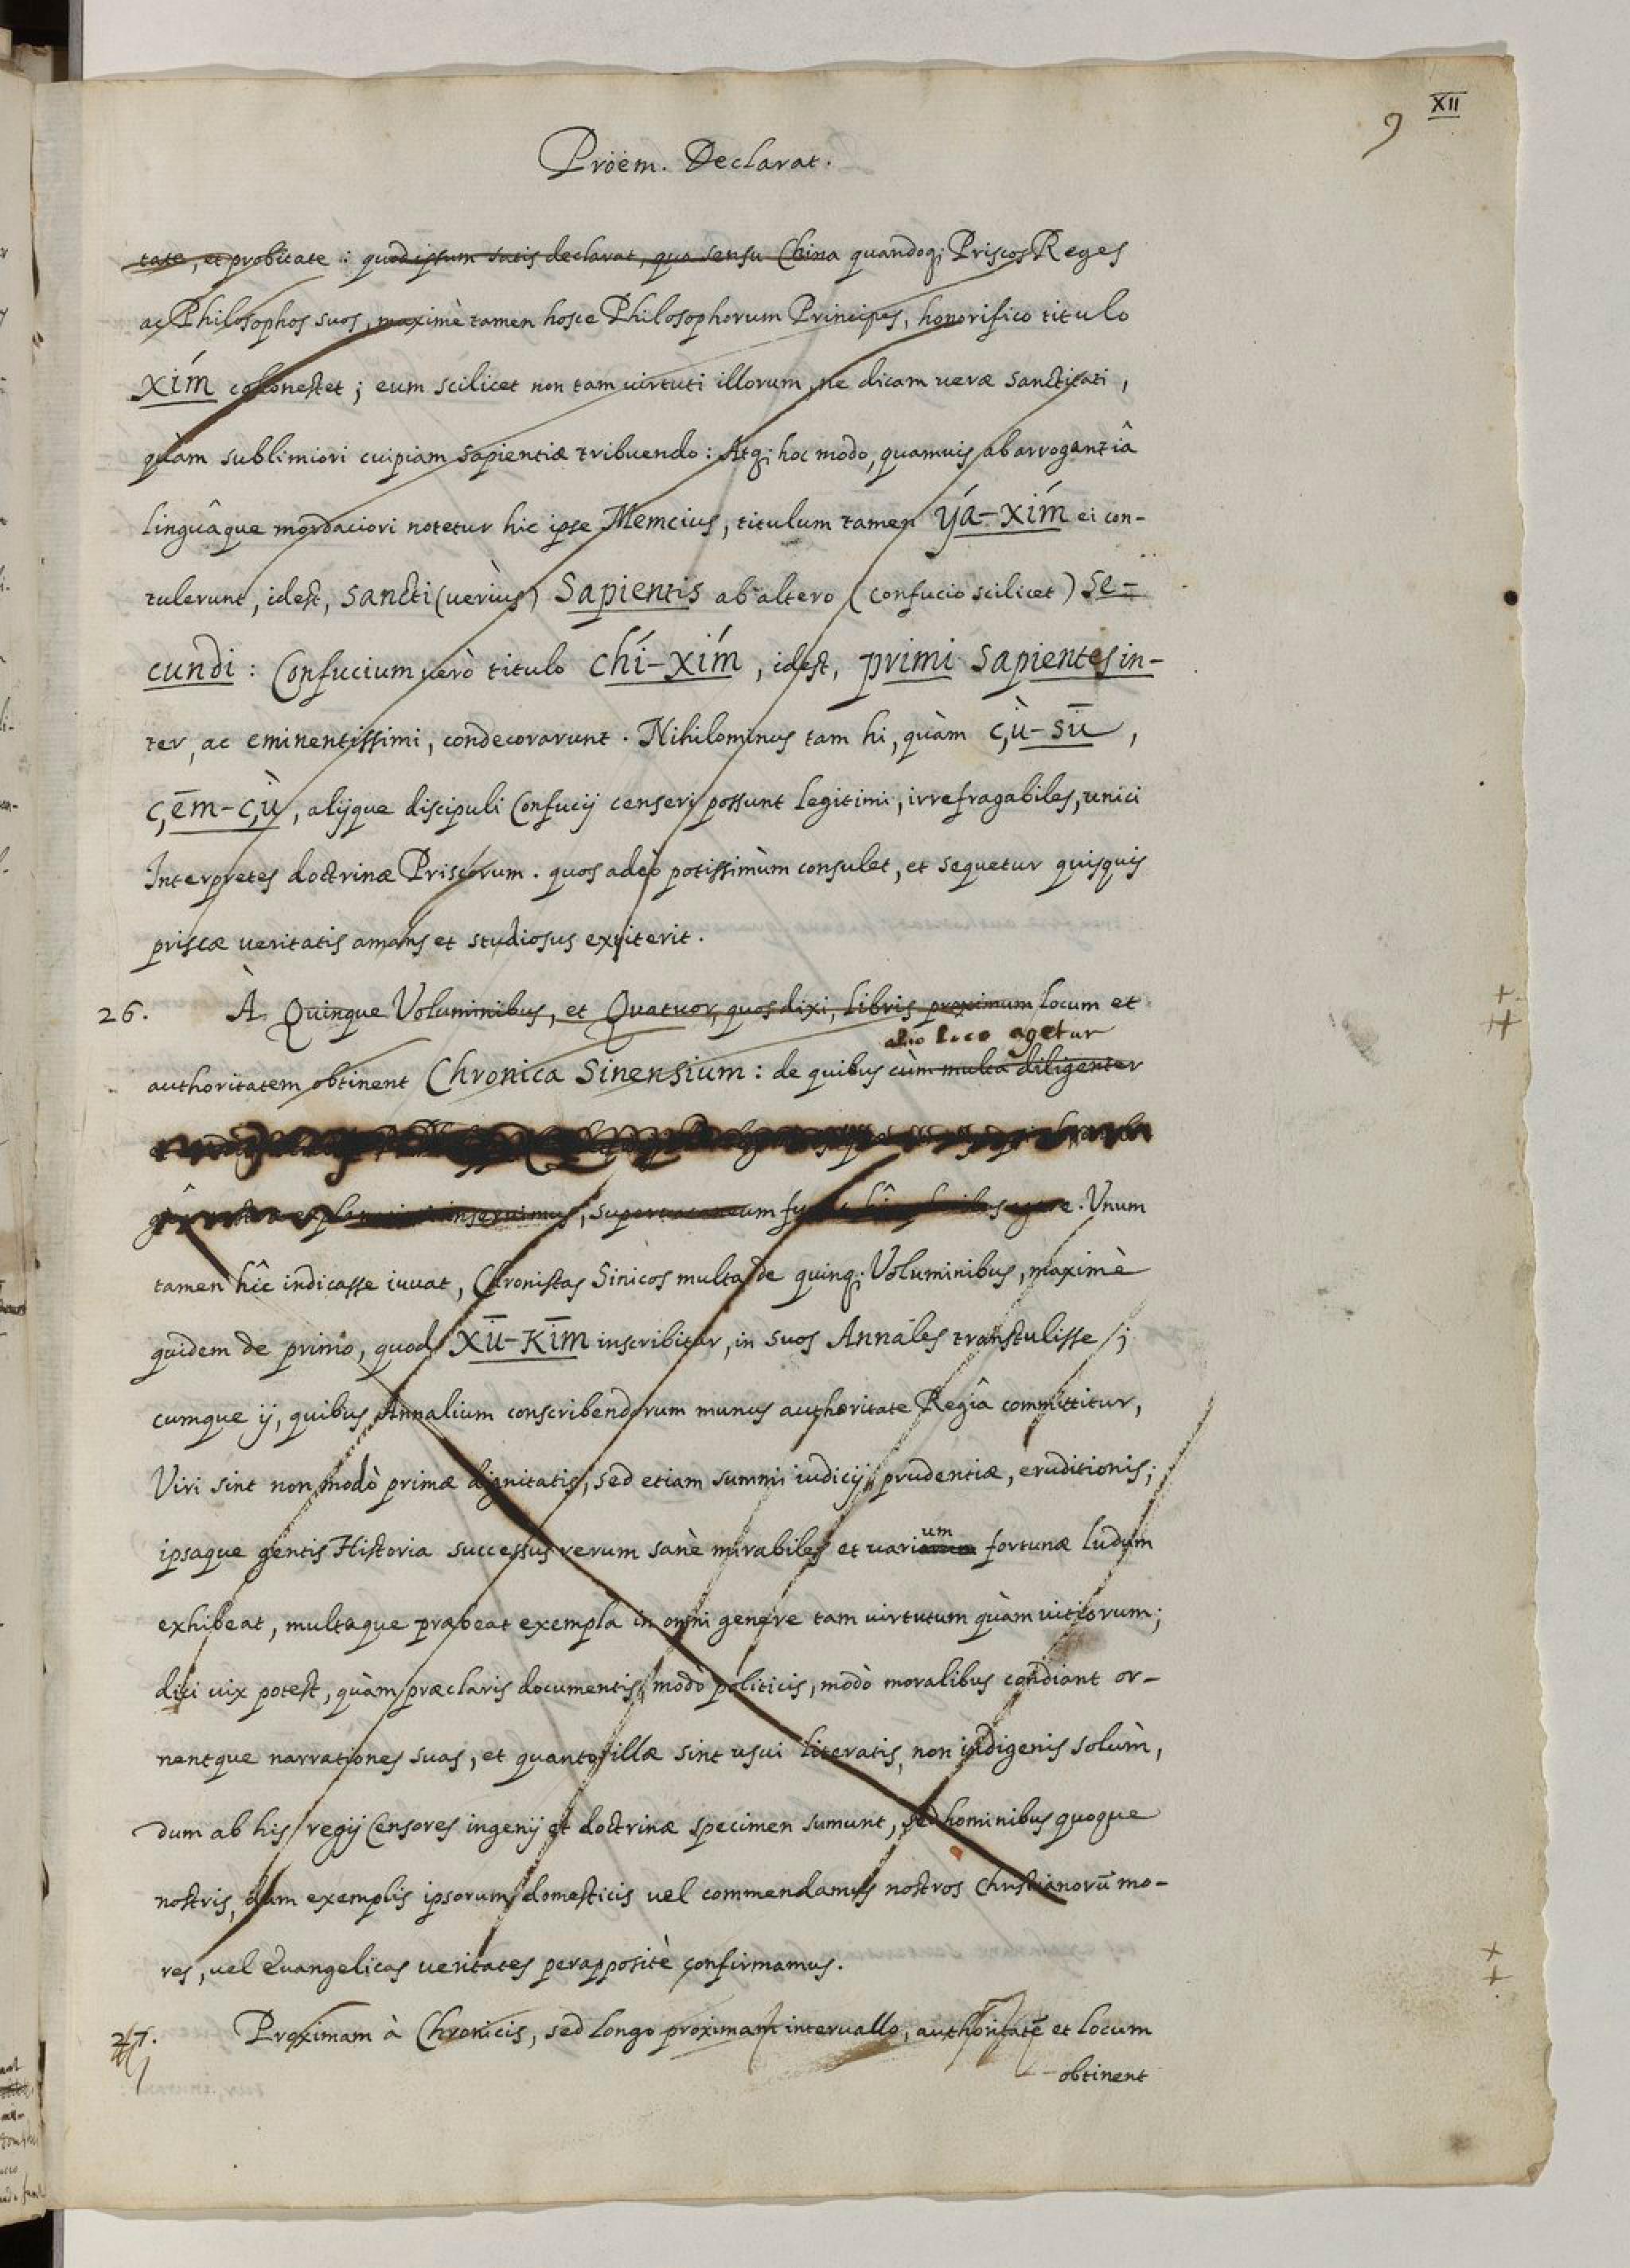 XII
9
Pröem. Declarat.
tate, et probitate: quod ipsum satis declarat, quo sensu China quandoq; Priscos Reges
ac Philosophos suos, maximè tamen hosce Philosophorum Principes, honorifico titulo
Xím cohonestet; eum scilicet non tam uirtuti illorum, ne dicam ueræ sanctitati,
quàm sublimiori cuipiam sapientiæ tribuendo: Atq; hoc modo, quamuis ab arrogantiâ
linguâque mordaciori notetur hic ipse Memcius, titulum tamen Yá-xím ei con-
tulerunt, idest, Sancti (uerius) Sapientis ab altero (Confucio scilicet) Se-
cundi: Confucium uerò titulo Chí-xím, idest, primi Sapientes in-
ter, ac eminentissimi, condecorarunt. Nihilominus tam hi, quàm Çù-sū,
Çēm-çù, alijque discipuli Confucij censeri possunt legitimi, irrefragabiles, unici
Interpretes doctrinæ Priscorum. quos adeò potissimùm consulet, et sequetur quisquis
priscæ ueritatis amans et studiosus extiterit.
26. À Quinque Voluminibus, et Quatuor, quos dixi, libris proximum locum et
alio loco agetur
authoritatem obtinent Chronica Sinensium: de quibus cùm multa diligenter
inseruimus, superuacaneum . Vnum
tamen hîc indicasse iuuat, Chronistas Sinicos multa de quinq; Voluminibus, maximè
quidem de primo, quod Xū-Kīm inscribitur, in suos Annales transtulisse;
cumque ij, quibus Annalium conscribendorum munus authoritate Regiâ committitur,
Viri sint non modò primæ dignitatis, sed etiam summi iudicij, prudentiæ, eruditionis;
um
ipsaque gentis Historia successus rerum sanè mirabiles et uariarum fortunæ ludum
exhibeat, multaque præbeat exempla in omni genere tam uirtutum quàm uitiorum;
dici uix potest, quàm præclaris documentis, modò politicis, modò moralibus condiant or-
nentque narrationes suas, et quanto illæ sint usui literatis, non indigenis solùm,
dum ab his regij Censores ingenij et doctrinæ specimen sumunt, sed hominibus quoque
nostris, dum exemplis ipsorum domesticis uel commendamus nostros Christianorū mo-
res, uel Euangelicas ueritates perappositè confirmamus.
27. Proximam à Chronicis, sed longo proximam interuallo, authoritatē et locum
obtinent